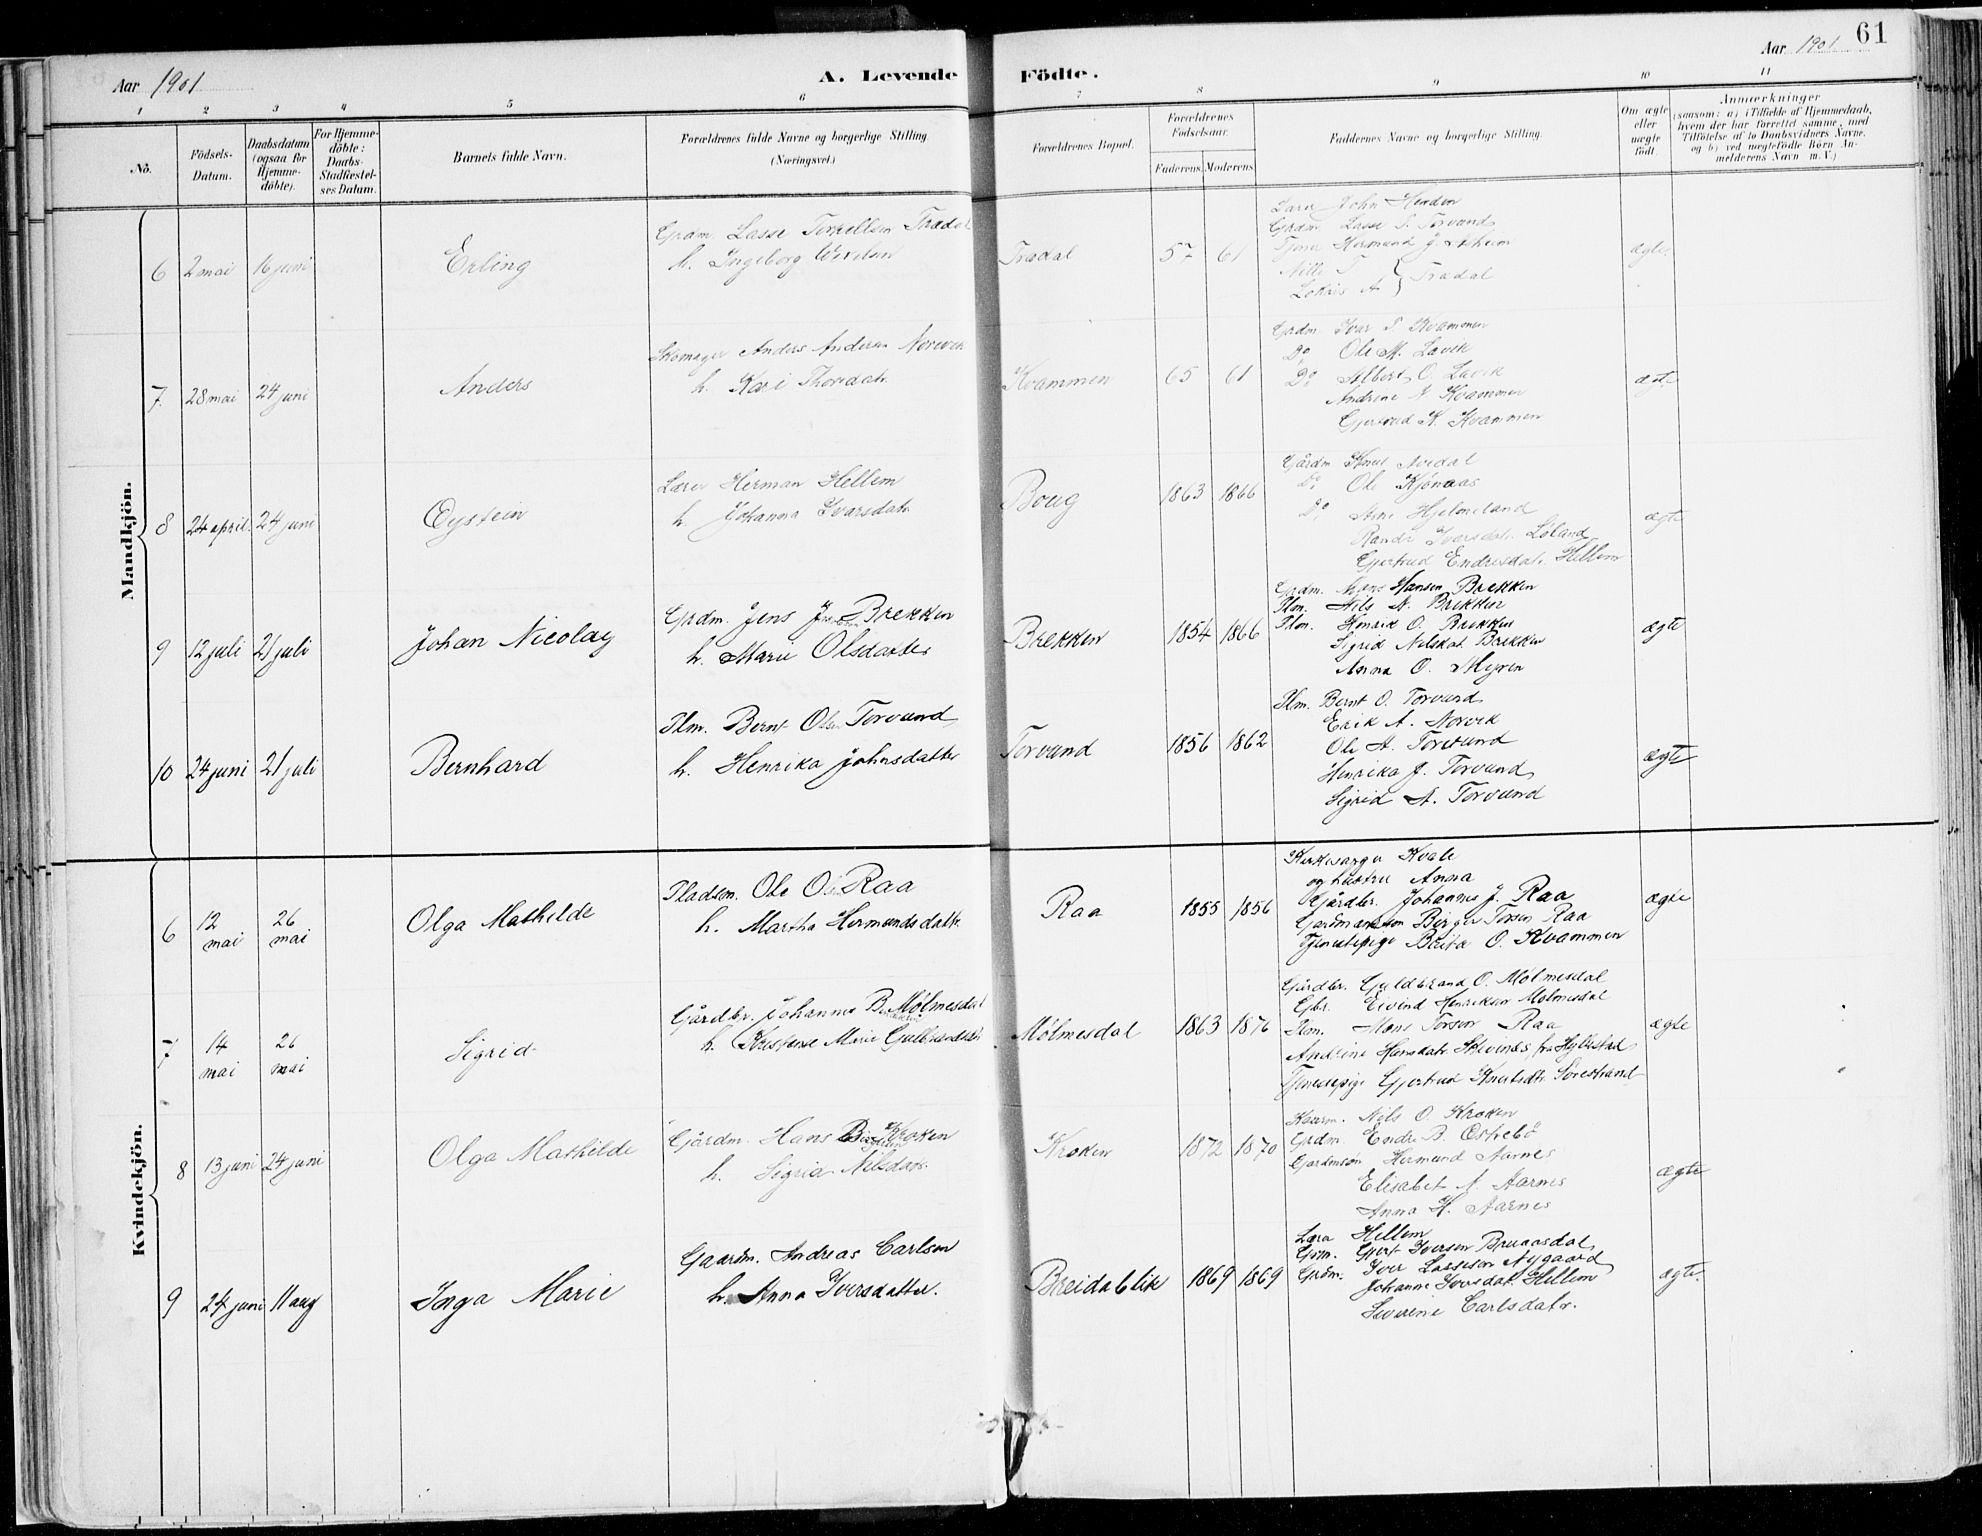 Aar 1901
A. Levende Födte.
Aar 1901
61
1 2 3 4 5 6 7 8 9 10 11
No.
Födsels-Datum.
Daabsdatum (ogsaa for Hjemme-döbte).
For Hjemme-döbte: Daabs-Stadfæstel-ses Datum.
Barnets fulde Navn.
Forældrenes fulde Navne og borgerlige Stilling (Næringsvei.)
Forældrenes Bopæl.
Forældrenes Födselsaar.
Faderens Moderens
Faddernes Navne og borgerlige Stilling.
Om ægte eller uægte födt.
Anmærkninger
(saasom: a) i Tilfælde af Hjemmedaab, hvem der har forrettet samme, med Tilföielse af to Daabsvidners Navne, og b) ved uægtefödte Börn An-melderens Navn m. V.)
Mandkjön.
6 2 mai 16 juni Erling
Grdm Lasse Torkellsen Trædal
h. Ingeborg
Trædal 57 61
Lærer John
Grdm Lasse S. Torvund
Tjener Hermund J.
Trædal
ægte
7. 28 mai 24 juni Anders
Skomager Anders Andersen Norevik
h. Kari Thoredatr
Kvammen 65 61
Grdm Ivar T Kvammen
Do Ole M. Lavik
Do Albert O. Lavik
Andrine A Kvammen
Gjertrud K. Kvammen
ægte
8 24 april 24 juni Øystein
Lærer Herman Hellem
h. Johanna Ivarsdatr
Boug 1863 1866
Gårdm Knut Avedal
Do Ole Kjønaas
Do Arne Hjelmeland
Randi Iversdatr. Løland
Gjertrud Endresdatr. Hellem
ægte
9 12 juli 21 juli Johan Nicolay
Grdm. Jens Brekken
h. Marie Olsdatter
Brekken 1854 1866
Grdm. Mons Hansen Brekken
Plm. Nils N. Brekken
Plm. Henrik O. Brekken
Sigrid Nilsdat. Brekken
Anna O. Myren
ægte
10 24 juni 21 juli Bernhard
Plm. Bernt Ols. Torvund
h. Henrika Johnsdatter
Torvund 1856 1862
Plm. Bernt O. Torvund
Erik A. Norvik
Ole A. Torvund
Henrika J. Torvund
Sigrid A. Torvund
ægte
Kvindekjön.
6 12 mai 26 mai Olga Mathilde
Pladsm. Ole Ols. Raa
h. Martha Hermundsdatr.
Raa 1855 1856
Kirkesanger Kvale
og hustru Anna
Gårdbr. Johannes J. Raa
Gardmandssøn Birger Torsen Raa
Tjenestepige Brita O. Kvammen
ægte
7 14 mai 26 mai Sigrid
Gårdbr. Johannes B. Mølmesdal
h. Kristense Marie Gulbrandsdtr
Mølmesdal 1863 1876
Gårdbr. Guldbrand O. Mølmesdal
Gbr. Eivind Henriksen Mølmesdal
Plm. Mons Torson Raa
Andrine Hansdatr Skivenes fra Hyllestad
Tjenestepige Gjertrud Knutsdtr Sørestrand
ægte
8 13 juni 24 juni Olga Mathilde
Gårdm. Hans Kroken
h. Sigrid Nilsdatr.
Kroken 1872 1870
Kaarm. Nils O. Kroken
Grdm. Endre B. Østrebø
Gardmsøn Hermund Aarnes
Elisabet A. Aarnes
Anna H. Aarnes
ægte
9 24 juni 11 aug Inga Marie
Gaardm. Andreas Carlsen
h. Anna Iversdatter.
Breidablik 1869 1869
Lærer Hellem
Grdm. Gjert Iversen Bruaasdal
Grdm. Iver Lasseson Nygaard
Johanne Iversdatr Hellem
Severine Carlsdatr.
ægte.